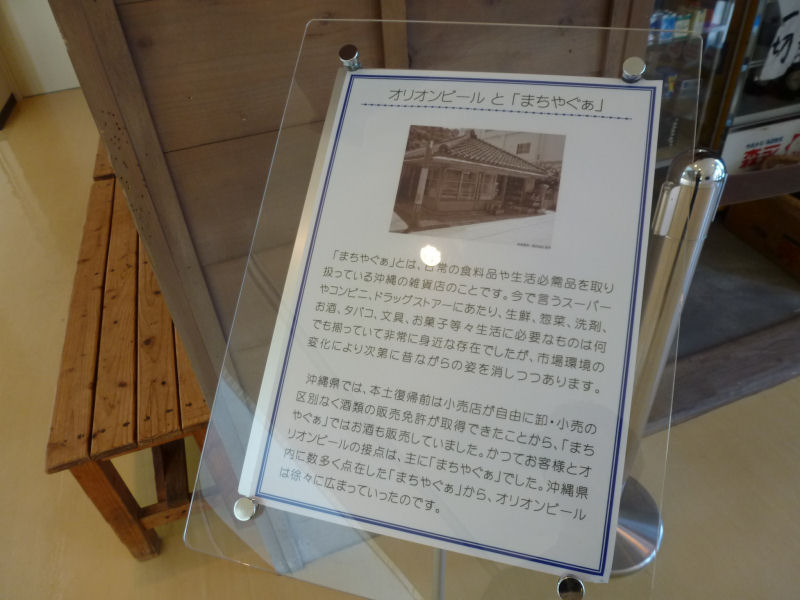 オリオンビール と 「まちやぐぁ」
「まちやぐぁ」とは、日常の食料品や生活必需品を取り
扱っている沖縄の雑貨店のことです。今で言うスーパー
やコンビニ、ドラッグストアーにあたり、生鮮、惣菜、洗剤、
お酒、タバコ、文具、お菓子等々生活に必要なものは何
でも揃っていて非常に身近な存在でしたが、市場環境の
変化により次第に昔ながらの姿を消しつつあります。
沖縄県では、本土復帰前は小売店が自由に卸・小売の
区別なく酒類の販売免許が取得できたことから、「まち
やぐぁ」ではお酒も販売していました。かつてお客様とオ
リオンビールの接点は、主に「まちやぐぁ」でした。沖縄県
内に数多く点在した「まちやぐぁ」から、オリオンビール
は徐々に広まっていったのです。